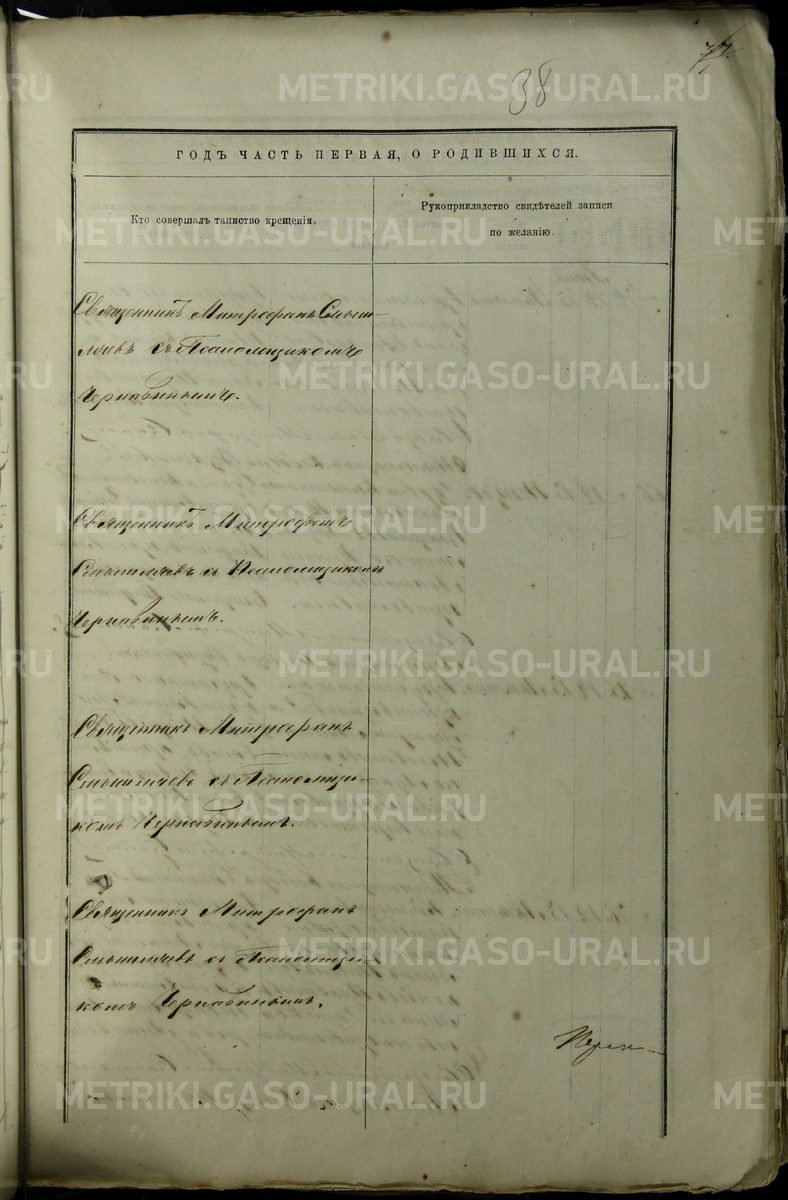 38
ГОДЪ ЧАСТЬ ПЕРВАЯ, О РОДИВШИХСЯ.
Кто совершалъ таинство крещенія.
Рукоприкладство свидѣтелей записи
по желанію.
Священникъ Митрофанъ Смыш-
ляевъ съ Псаломщикомъ
Чернавинымъ.
Священникъ Митрофанъ
Смышляевъ съ Псаломщикомъ
Чернавинымъ.
Священникъ Митрофанъ
Смышляевъ съ Псаломщи-
комъ Чернавинымъ.
Священникъ Митрофанъ
Смышляевъ съ Псаломщи-
комъ Чернавинымъ.
METRIKI.GASO-URAL.RU